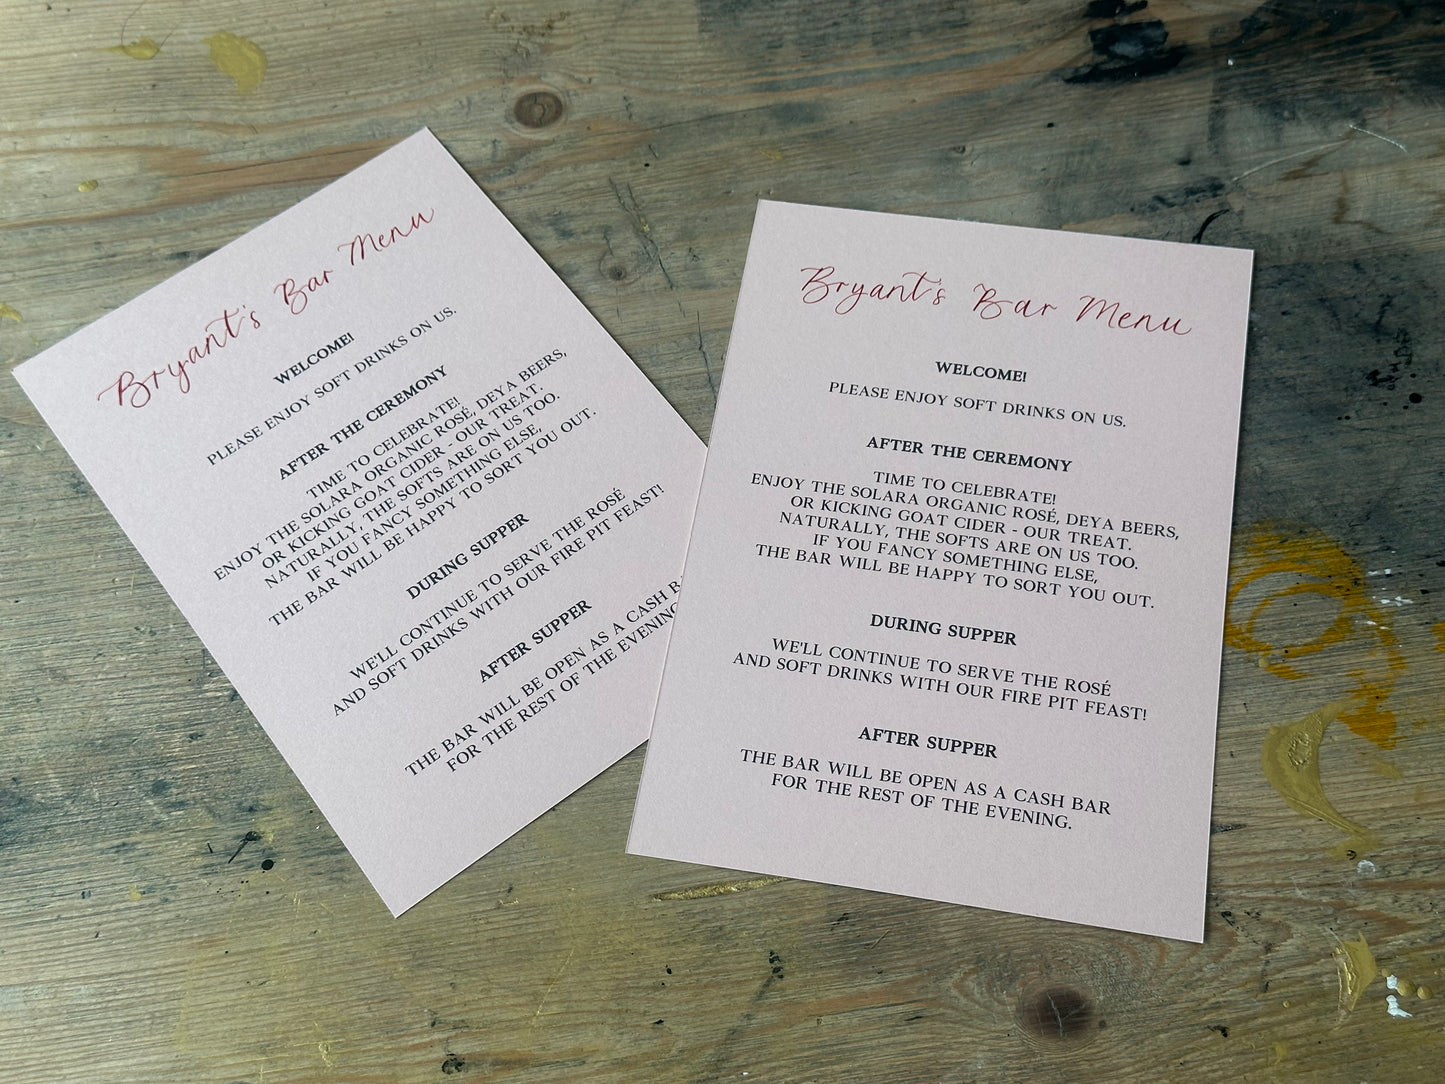 Bryant's Bar Menu
WELCOME!
PLEASE ENJOY SOFT DRINKS ON US.
AFTER THE CEREMONY
TIME TO CELEBRATE!
ENJOY THE SOLARA ORGANIC ROSÉ, DEYA BEERS,
OR KICKING GOAT CIDER - OUR TREAT.
NATURALLY, THE SOFTS ARE ON US TOO.
IF YOU FANCY SOMETHING ELSE,
THE BAR WILL BE HAPPY TO SORT YOU OUT.
DURING SUPPER
WE'LL CONTINUE TO SERVE THE ROSÉ
AND SOFT DRINKS WITH OUR FIRE PIT FEAST!
AFTER SUPPER
THE BAR WILL BE OPEN AS A CASH B
FOR THE REST OF THE EVENING
Bryant's Bar Menu
WELCOME!
PLEASE ENJOY SOFT DRINKS ON US.
AFTER THE CEREMONY
TIME TO CELEBRATE!
ENJOY THE SOLARA ORGANIC ROSÉ, DEYA BEERS,
OR KICKING GOAT CIDER - OUR TREAT.
NATURALLY, THE SOFTS ARE ON US TOO.
IF YOU FANCY SOMETHING ELSE,
THE BAR WILL BE HAPPY TO SORT YOU OUT.
DURING SUPPER
WE'LL CONTINUE TO SERVE THE ROSÉ
AND SOFT DRINKS WITH OUR FIRE PIT FEAST!
AFTER SUPPER
THE BAR WILL BE OPEN AS A CASH BAR
FOR THE REST OF THE EVENING.